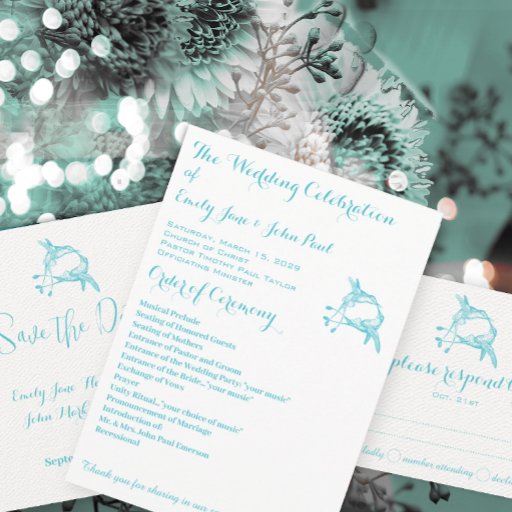 The Wedding Celebration
of
Emily Jane & John Paul
Saturday, March 15, 2029
Church of Christ
Pastor Timothy Paul Taylor
Officiating Minister
Order of Ceremony
Musical Prelude
Seating of Honored Guests
Seating of Mothers
Entrance of Pastor and Groom
Entrance of the Wedding Party: "your music"
Entrance of the Bride,, "your music"
Exchange of Vows
Prayer
Unity Ritual,, "your choice of music"
Pronouncement of Marriage
Introduction of:
Mr. & Mrs. John Paul Emerson
Recessional
Thank you for sharing in our
Save the Da
Emily Jane He
John Har
Sept
please respond
Oct. 21st
ladly number attending decli